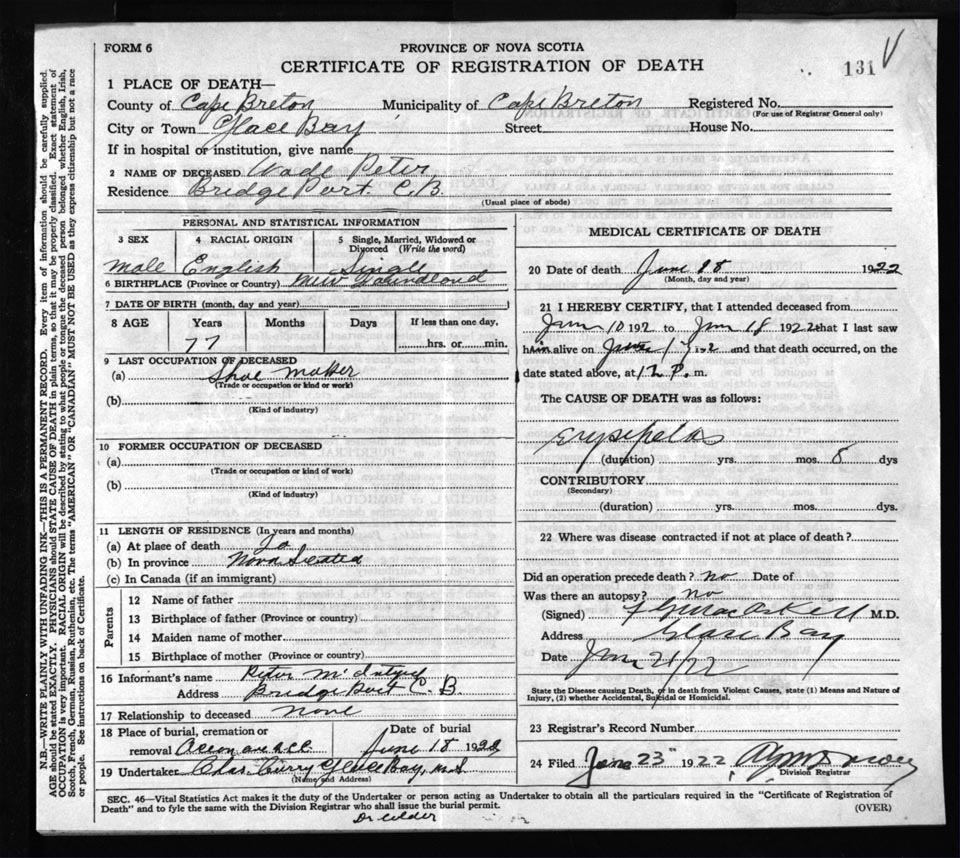 FORM 6
PROVINCE OF NOVA SCOTIA
CERTIFICATE OF REGISTRATION OF DEATH
131
1 PLACE OF DEATH—
County of Cape Breton Municipality of Cape Breton Registered No.
(For use of Registrar General only)
City or Town Glace Bay Street House No.
If in hospital or institution, give name
2 NAME OF DECEASED Wade Peter
Residence Bridge Port C.B.
(Usual place of abode)
PERSONAL AND STATISTICAL INFORMATION
3 SEX 4 RACIAL ORIGIN 5 Single, Married, Widowed or Divorced (Write the word)
Male English Single
6 BIRTHPLACE (Province or Country)
7 DATE OF BIRTH (month, day and year)
8 AGE Years Months Days If less than one day,
77 hrs. or min.
9 LAST OCCUPATION OF DECEASED
(a) Shoe Maker
(Trade or occupation or kind or work)
(b)
(Kind of industry)
10 FORMER OCCUPATION OF DECEASED
(a)
(Trade or occupation or kind of work)
(b)
(Kind of industry)
11 LENGTH OF RESIDENCE (In years and months)
(a) At place of death
(b) In province Nova Scotia
(c) In Canada (if an immigrant)
Parents
12 Name of father
13 Birthplace of father (Province or country)
14 Maiden name of mother
15 Birthplace of mother (Province or country)
16 Informant's name Peter McIntyre
Address Bridge Port C. B.
17 Relationship to deceased none
18 Place of burial, cremation or Date of burial
removal June 18 1922
19 Undertaker Chas. Curry Glace Bay, N.S.
(Name and Address)
MEDICAL CERTIFICATE OF DEATH
20 Date of death June 18 1922
(Month, day and year)
21 I HEREBY CERTIFY, that I attended deceased from
Jun 10 192 to Jun 18 1922 that I last saw
him alive on June 17 192 and that death occurred, on the
date stated above, at 12 P. m.
The CAUSE OF DEATH was as follows:
Erysipelas
(duration) yrs. mos. 8 dys
CONTRIBUTORY
(Secondary)
(duration) yrs. mos. dys.
22 Where was disease contracted if not at place of death?
Did an operation precede death? no Date of
Was there an autopsy? no
(Signed) M.D.
Address Glace Bay
Date Jun 21/22
State the Disease causing Death, or in death from Violent Causes, state (1) Means and Nature of
Injury, (2) whether Accidental, Suicidal or Homicidal.
23 Registrar's Record Number
24 Filed June 23 1922
Division Registrar
SEC. 46—Vital Statistics Act makes it the duty of the Undertaker or person acting as Undertaker to obtain all the particulars required in the "Certificate of Registration of
Death" and to fyle the same with the Division Registrar who shall issue the burial permit. (OVER)
N.B.—WRITE PLAINLY WITH UNFADING INK—THIS IS A PERMANENT RECORD. Every item of information should be carefully supplied.
AGE should be stated EXACTLY. PHYSICIANS should STATE CAUSE OF DEATH in plain terms, so that it may be properly classified. Exact statement of
OCCUPATION is very important. RACIAL ORIGIN will be described by stating to what people or tongue the deceased person belonged, whether English, Irish,
Scotch, French, German, Russian, Ruthenian, etc. The terms "AMERICAN" OR "CANADIAN" MUST NOT BE USED as they express citizenship but not a race
or people. See instructions on back of Certificate.